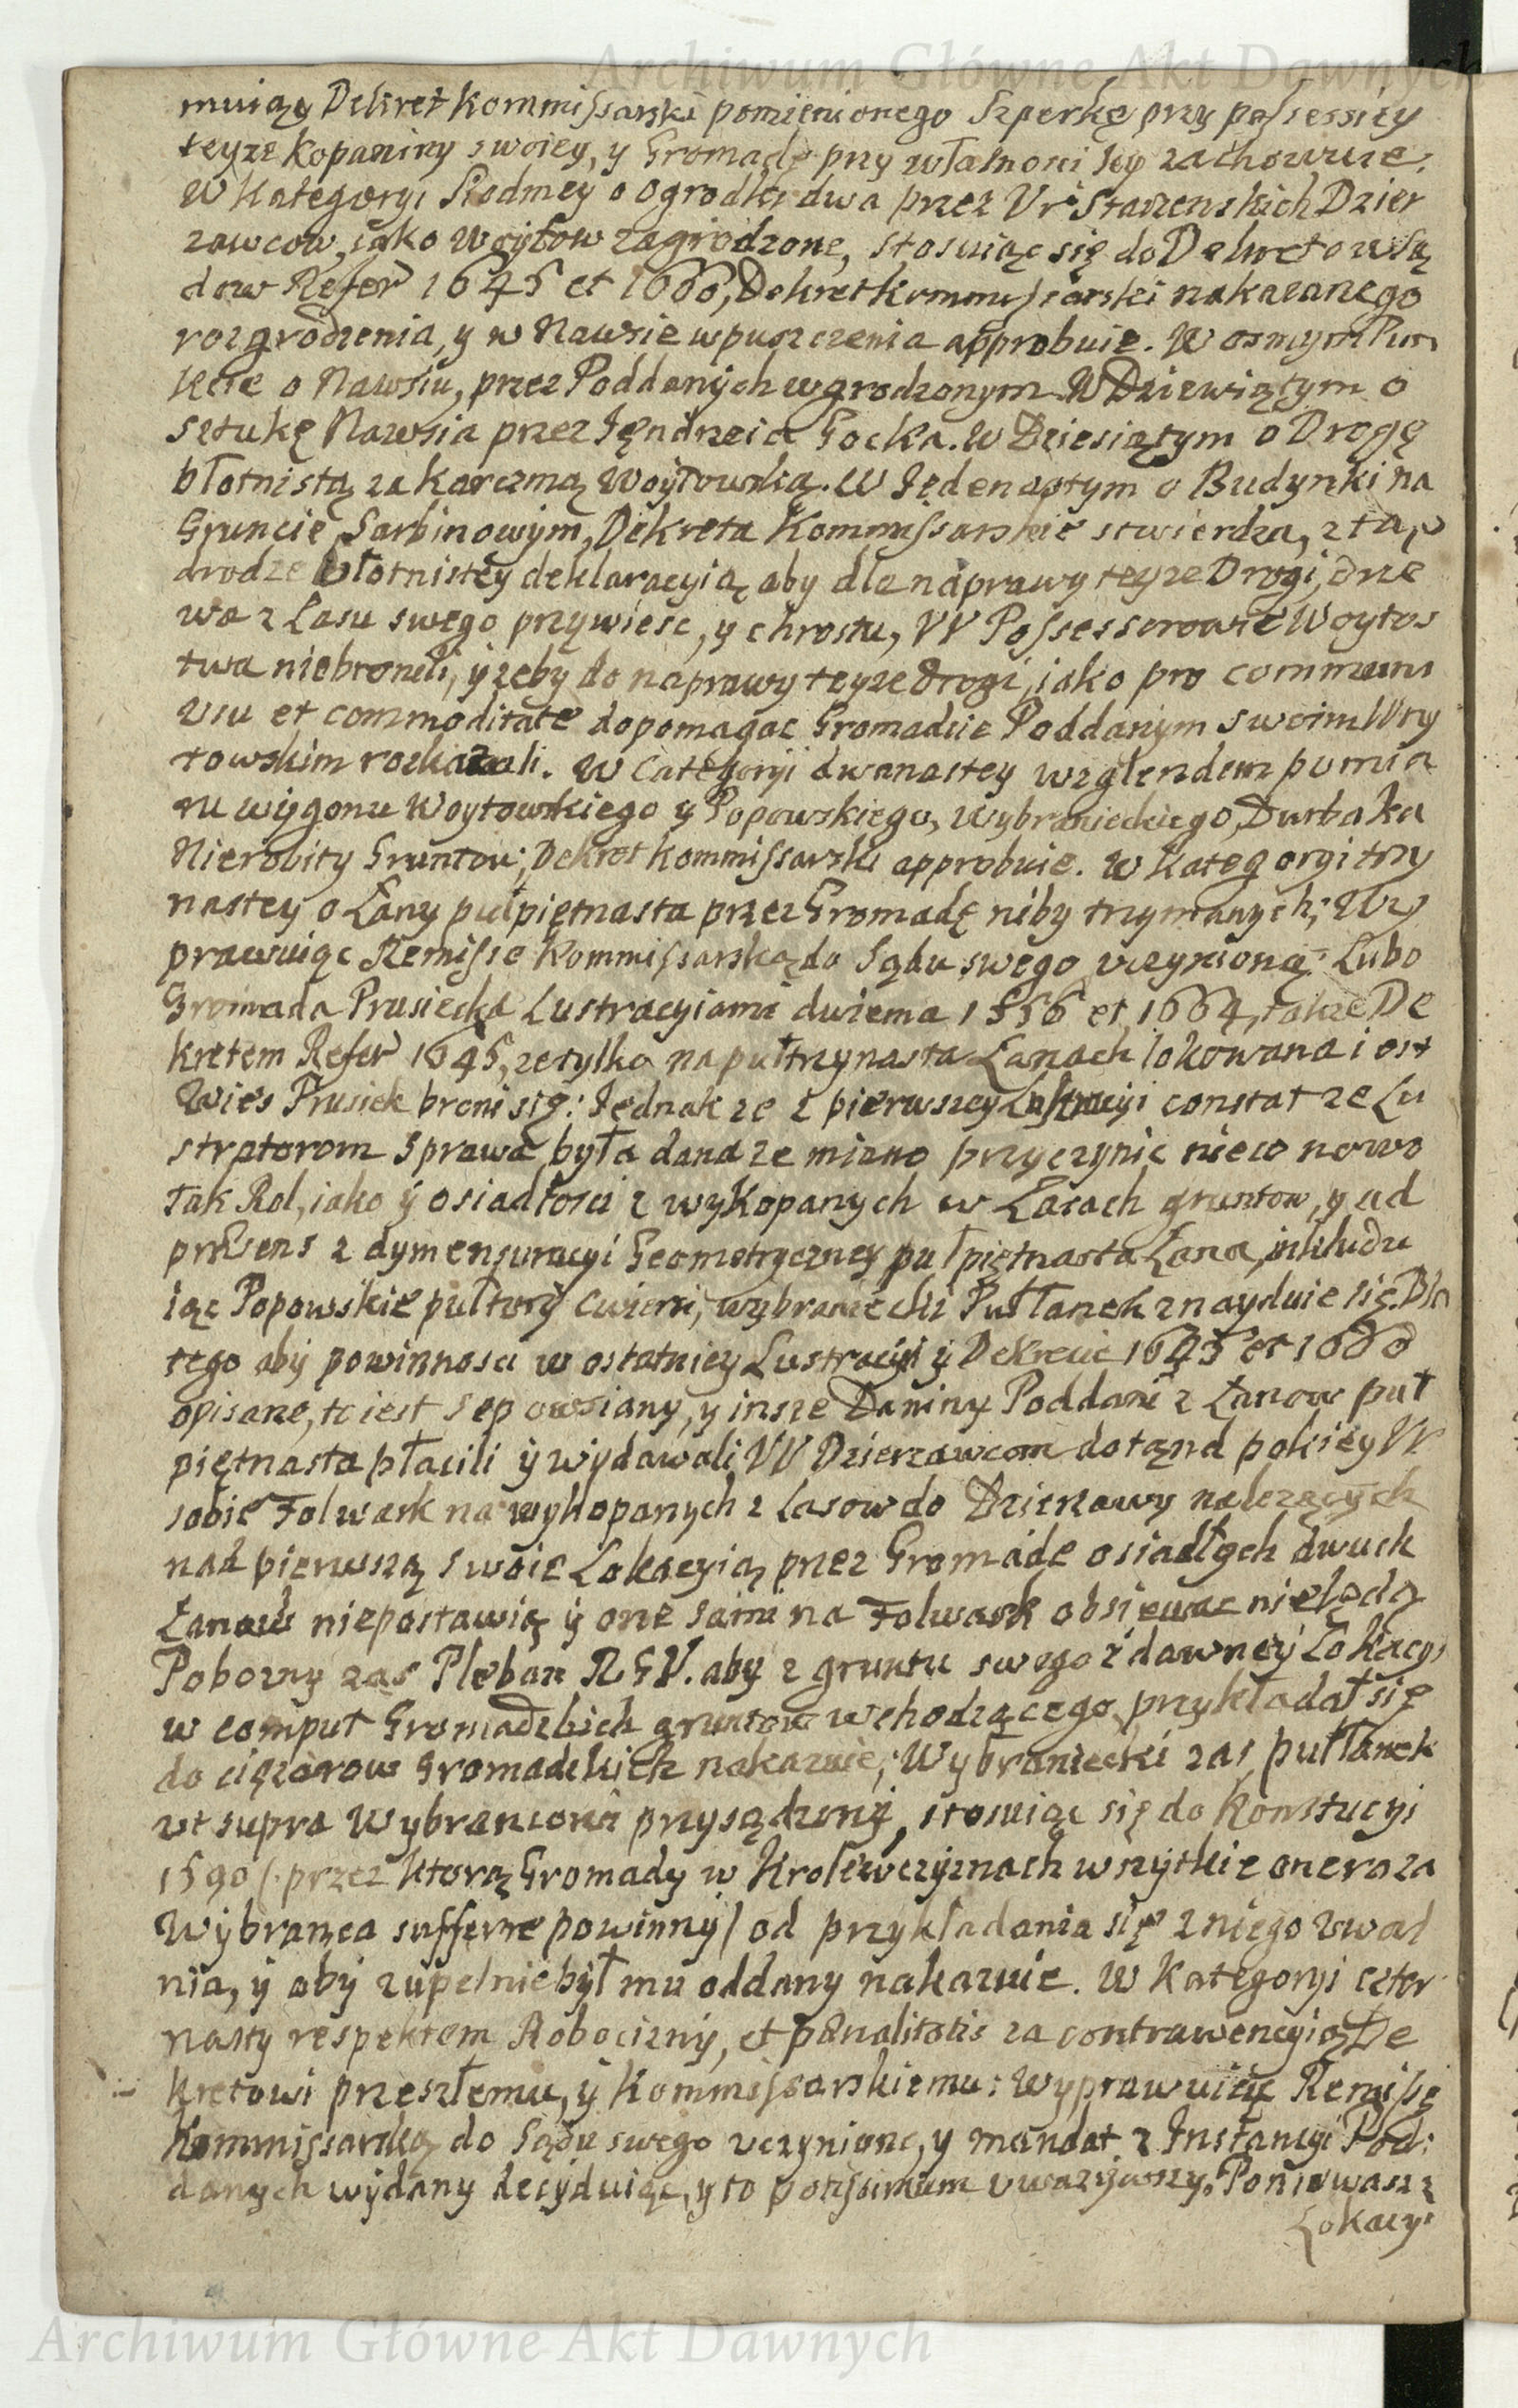 Archiwum Główne Akt Dawnych
muiący Dekret Kommissarski pomienionego Szperkę przy possessiey
teyze Kopaniny swoiey, y Gromadę przy własnosci iey zachowuie.
W Kategoryi Siodmey o ogrodki dwa przez Vr Starzenskich Dzier
zawcow, iako Woytow zagrodzone, stosuiąc się do Dekretow Są
dow Refer 1645 et 1660, Dekret Kommissarski nakazanego
rozgrodzenia, y w Nawsie wpuszczenia approbuie. W osmym Pun
kcie o Nawsiu, przez Poddanych wgrodzonym. W Dziewiątym o
sztukę Nawsia przez Jęndrzeia Gocka. W Dziesiątym o Drogę
błotnistą za karczmą Woytowską. W Jedenastym o Budynki na
Gruncie Sarbinowym, Dekreta Kommissarskie stwierdza, z tą o
drodze błotnistey deklaracyią, aby dla naprawy teyze Drogi, drze
wa z Lasu swego przywiesc, y chrostu, VV Possessorowie Woytos
twa niebronili, y zeby do naprawy teyze drogi, iako pro communi
vsu et commoditate dopomagac Gromadzie Poddanym swoim Woy
towskim rozkazali. W Categoryi dwanastey względem pomia
ru wygonu Woytowskiego y Popowskiego, Wybranieckiego, Durbaka
Nierobity Gruntow; Dekret Kommissarski approbuie. W Kategoryi trzy
nastey o Łany pułpiętnasta przez Gromadę niby trzymanych;
prawuiąc Remisse Kommissarską do Sądu swego vczynioną: Lubo
Gromada Prusiecka Lustracyiami dwiema 1556 et 1664, takze De
kretem Refer 1645, ze tylko na pułtrzynasta Łanach lokowana iest
Wies Prusiek broni się: Jednak ze z pierwszey Lustracyi constat ze Lu
stratorom sprawa była dana ze miano przyczynic nieco nowo
tak Rol, iako y osiadłosci z wykopanych w Lasach gruntow, y ad
præsens z dymensuracyi Geometryczney pułpiętnasta Łana, inkludu
iąc Popowskie pułtory cwierci, wybraniecki Pułłanek znayduie się. Dla
tego aby powinnosci w ostatniey Lustracyi y Dekrecie 1645 et 1660
opisane, to iest sep owsiany, y insze Daniny Poddani z Łanow puł
piętnasta płacili y wydawali VV Dzierzawcom dotąnd pokiey VV
sobie Folwark na wykopanych z Lasow do Dzierzawy nalezących
nad pierwszą swoie Lokacyią przez Gromadę osiadłych dwuch
Łanow niepostawią y one sami na Folwark obsiewac nie będą
Poborny zas Pleban R. G. V. aby z gruntu swego z dawney Lokacyi
w comput Gromadzkich gruntow wchodzącego, przykładał się
do cięzarow Gromadzkich nakazuie; Wybraniecki zas pułłanek
vt supra Wybrancowi przysądzony, stosuiąc się do Konstucyi
1590 (. przez ktorą Gromady w Krolewczyznach wszytkie onera za
Wybranca sufferre powinny) od przykładania się z niego vwal
nia, y aby zupełnie był mu oddany nakazuie. W Kategoryi czter
nasty respektem Robocizny, et pœnalitatis za contrawencyią De
kretowi przeszłemu, y Kommissarskiemu: Wyprawuiąc Remissę
Kommissarską do Sądu swego vczynione, y mandat z Instancyi Pod:
danych wydany decyduiąc, y to potissimum vwazywszy. Poniewasz z
Lokacyi
Archiwum Główne Akt Dawnych